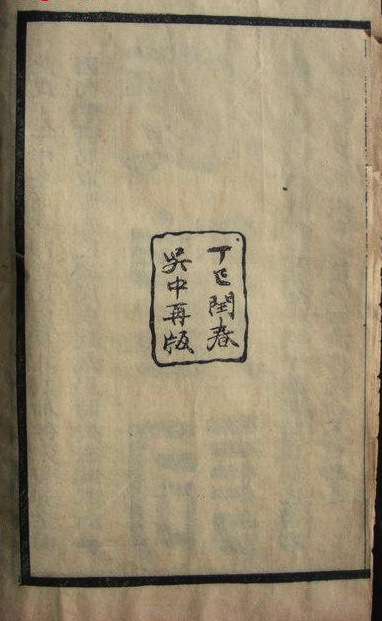 丁巳閏春
吳中再版